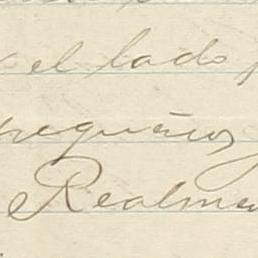 el lado
pequeños
Realmen